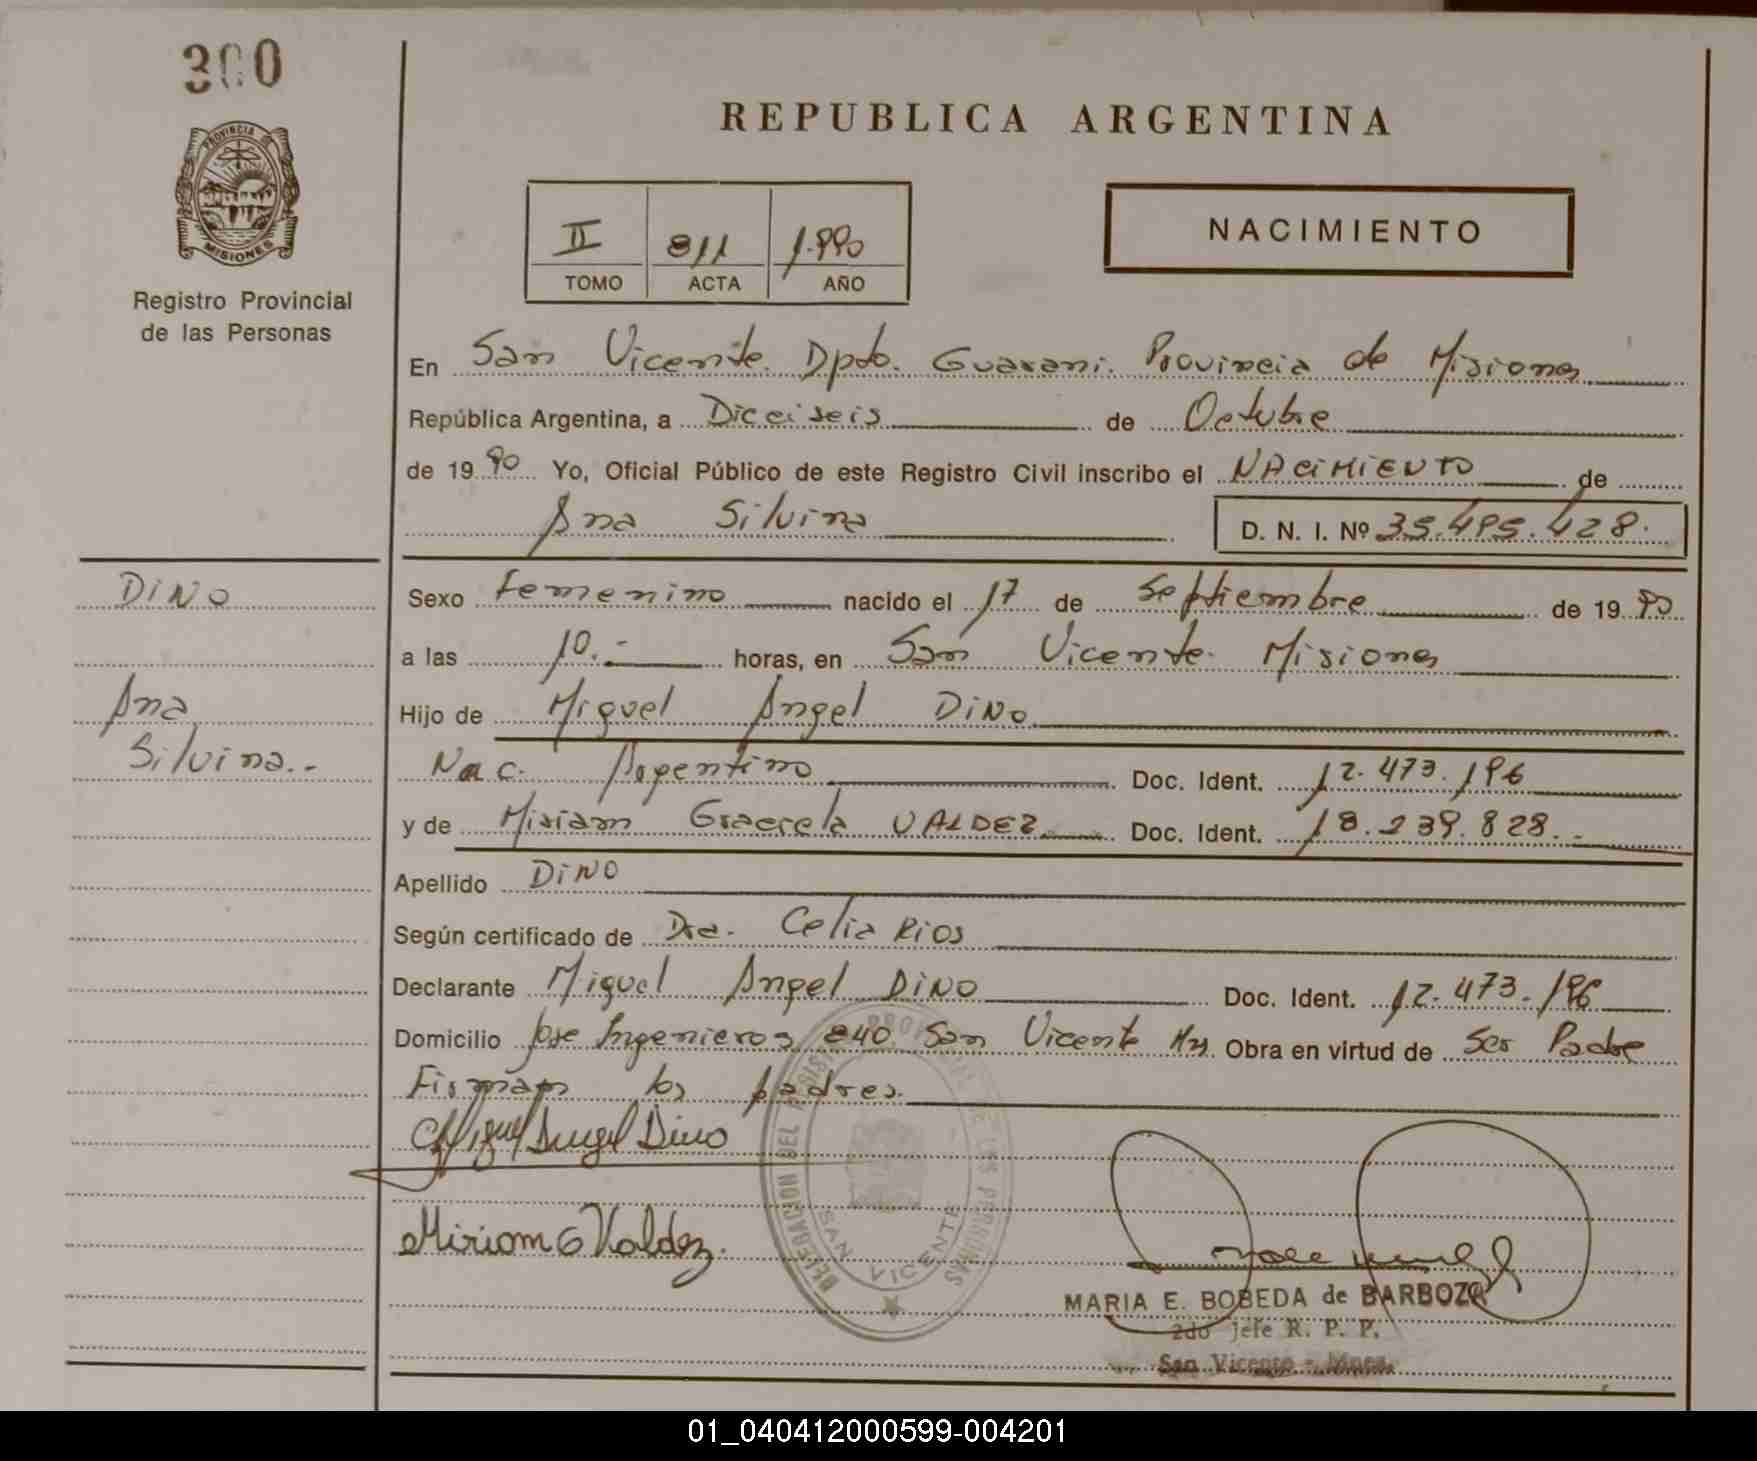 300
PROVINCIA DE
MISIONES
Registro Provincial
de las Personas
REPUBLICA ARGENTINA
II 811 1.990
TOMO ACTA AÑO
NACIMIENTO
En San Vicente. Dpto. Guarani. Provincia de Misiones
República Argentina, a Dieciseis de Octubre
de 19 90 Yo, Oficial Público de este Registro Civil inscribo el NACIMIENTO de
Ana Silvina D. N. I. Nº 35.495.428.
DINO
Ana
Silvina.-
Sexo Femenino nacido el 17 de Septiembre de 19 90
a las 10.- horas, en San Vicente. Misiones
Hijo de Miguel Angel DINO
Nac. Argentino Doc. Ident. 12.473.196
y de Miriam Graciela VALDEZ Doc. Ident. 18.239.828.-
Apellido DINO
Según certificado de Dra. Celia Rios
Declarante Miguel Angel DINO Doc. Ident. 12.473.196
Domicilio Jose Ingenieros 840 San Vicente Mns. Obra en virtud de Ser Padre
Firman los padres.
Miguel Angel Dino
Miriam G Valdez.
DELEGACION DEL REGISTRO PROVINCIAL DE LAS PERSONAS
SAN VICENTE
MARIA E. BOBEDA de BARBOZA
2do Jefe R. P. P.
San Vicente - Mnes.
01_040412000599-004201